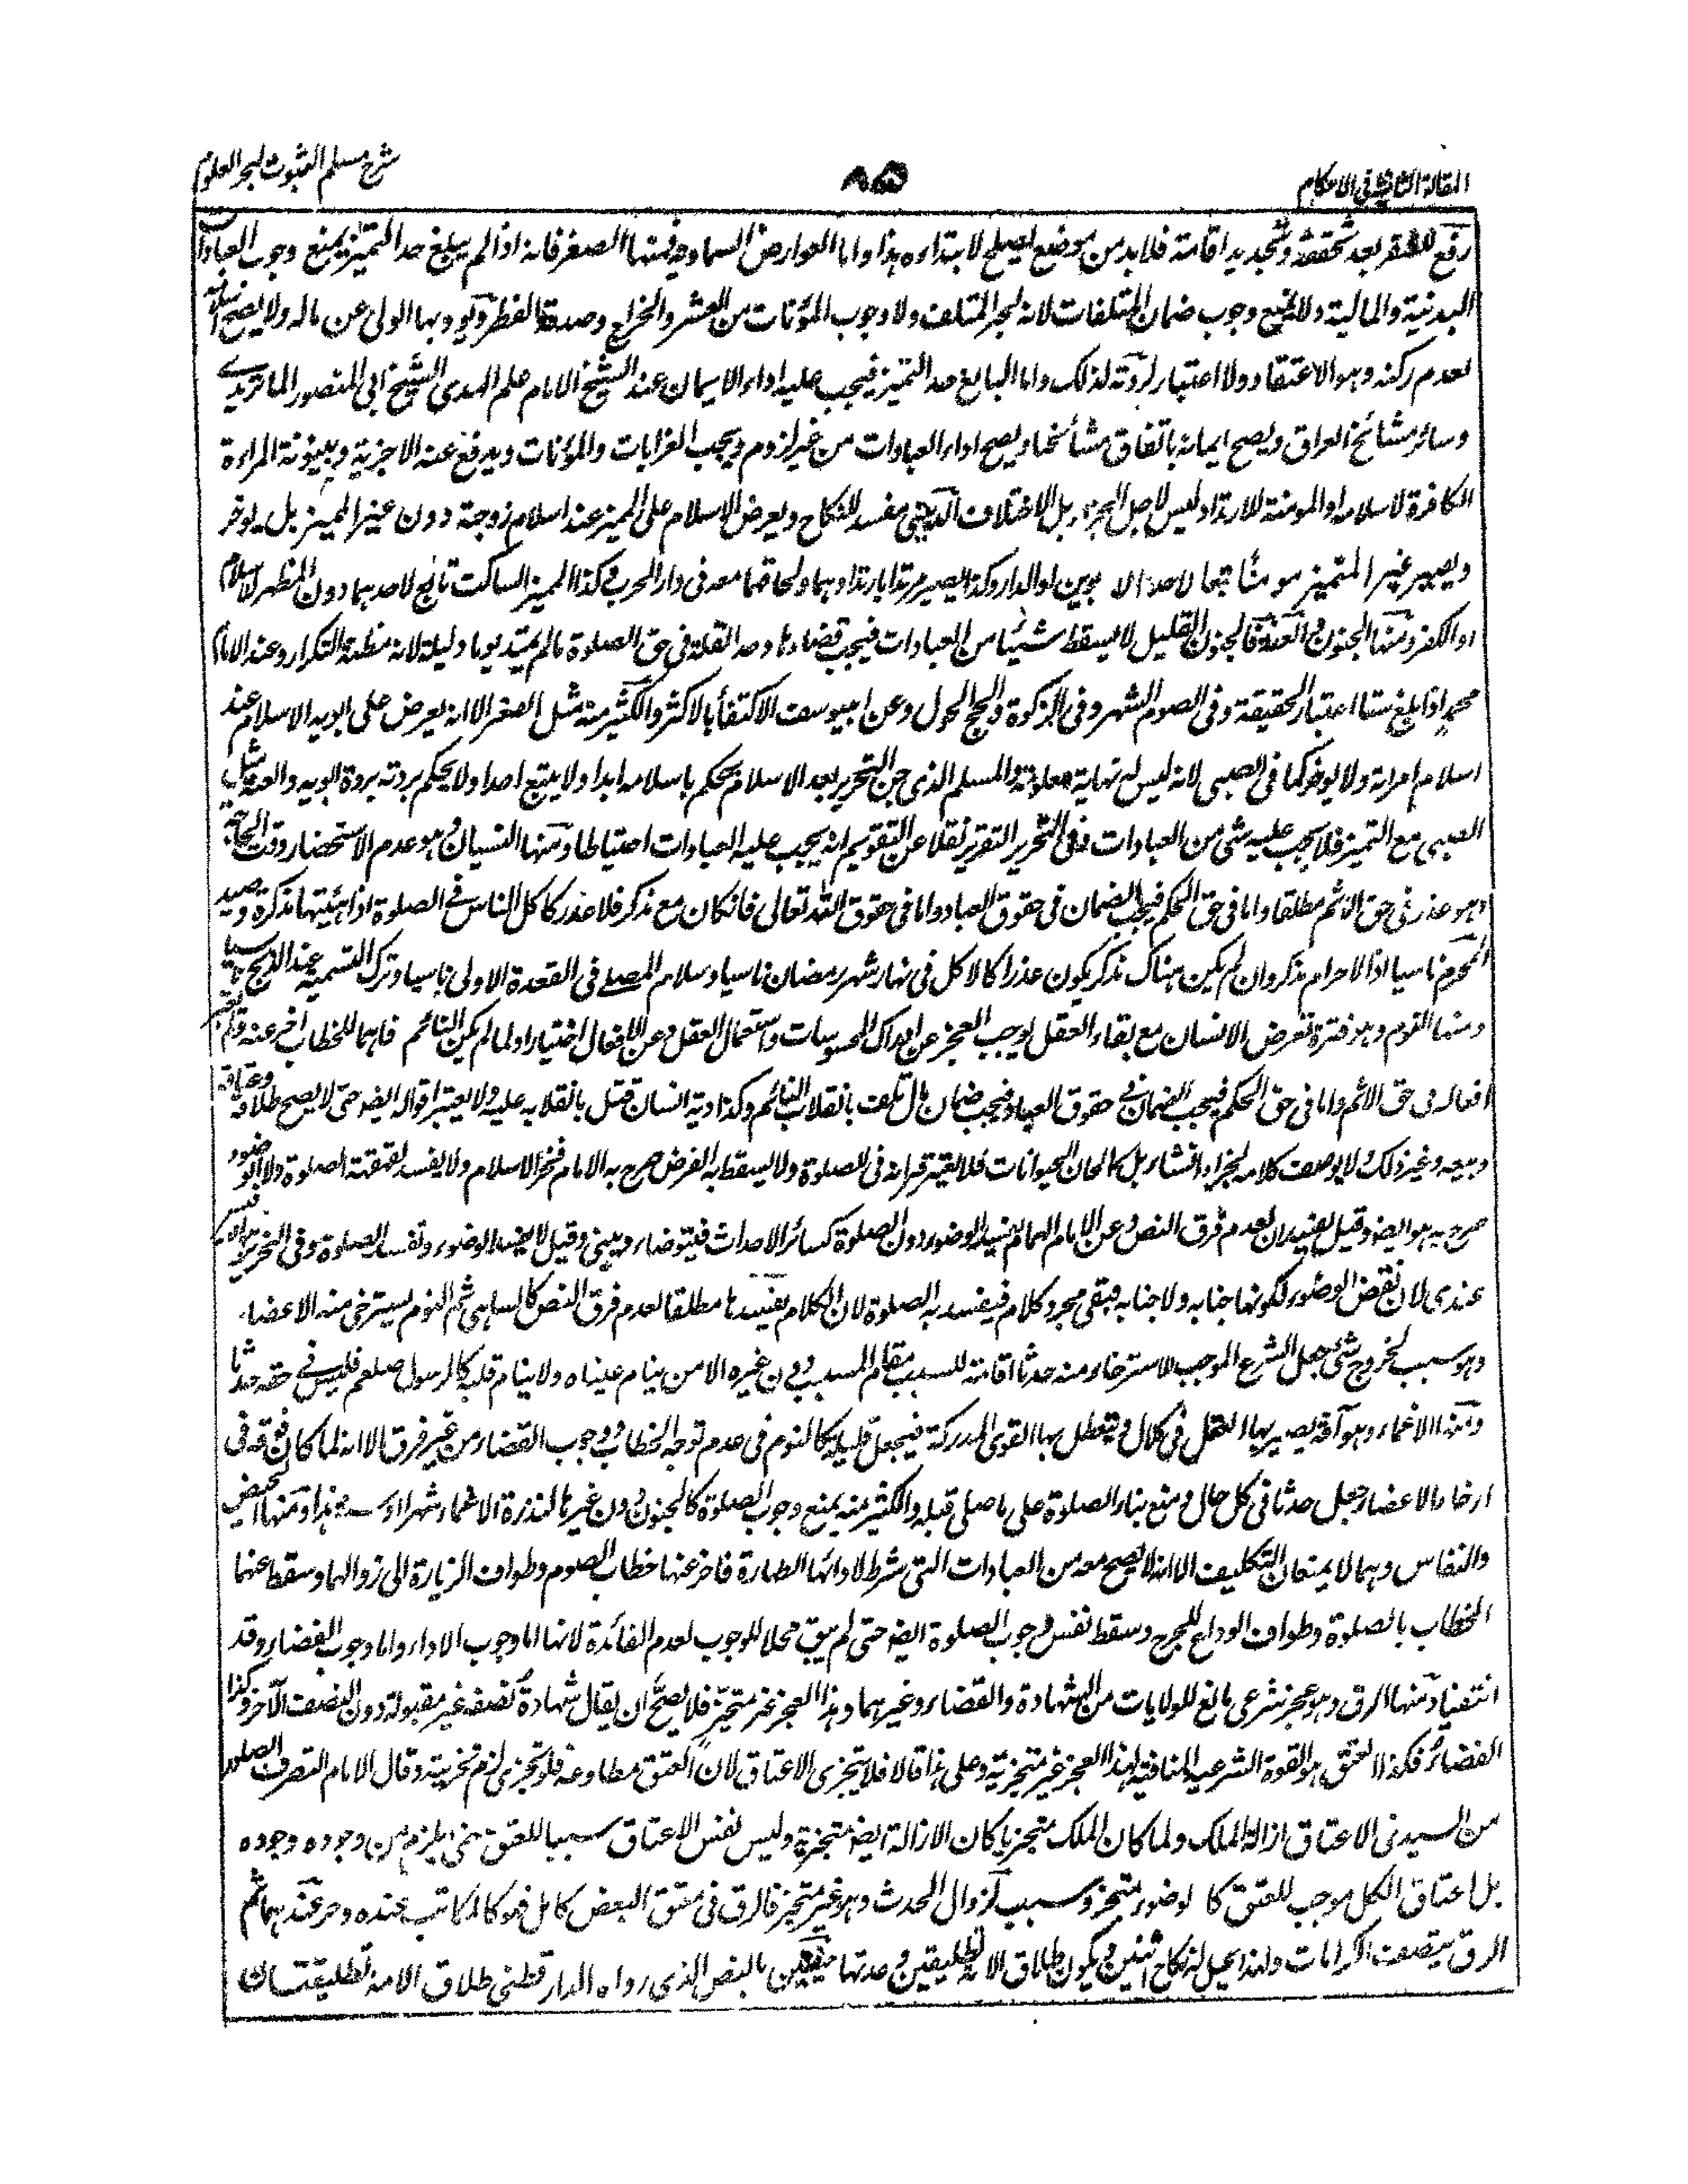 المقالة الثانية في الاحكام
٨٥
شرح مسلم الثبوت لبحر العلوم
رفع للسفر بعد تحققه وتجديد اقامته فلابد من موضع يصلح لابتداءه هذا واما العوارض السماوية فمنها الصغر فانه اذا لم يبلغ حد التميز يمنع وجوب العبادات
البدنية والمالية ولا يمنع وجوب ضمان المتلفات لانه لجبر المتلف ولا وجوب المؤنات من العشر والخراج وصدقة الفطر ويؤديها الولى عن ماله ولا يصح ايمانه
لعدم ركنه وهو الاعتقاد ولا اعتبار لردته لذلك واما البالغ حد التميز فيجب عليه اداء الايمان عند الشيخ الامام علم الهدى الشيخ ابى المنصور الماتريدى
وسائر مشائخ العراق ويصح ايمانه باتفاق مشائخنا ويصح اداء العبادات من غير لزوم ويجب الغرامات والمؤنات ويدفع عنه الاجزية وبينونة المراءة
الكافرة لاسلامه او المومنة للارتداد ليس لاجل الجزاء بل الاختلاف الدينى مفسد للنكاح ويعرض الاسلام على المميز عند اسلام زوجته دون غير المميز بل يوخر
ويصير غير المتميز مومنا تبعا لاحد الابوين او الدار وكذا يصير مرتدا بارتدادهما ولحاقهما معه فى دار الحرب وكذا المميز الساكت تابع لاحدهما دون المظهر للاسلام
او الكفر ومنها الجنون والعته فالجنون القليل لا يسقط شيئا من العبادات فيجب قضاءها وحد القلة فى حق الصلوة مالم يمتد يوما وليلة لانه مظنة التكرار وعند الامام
محمد اذا بلغ ستا اعتبار الحقيقة وفى الصوم الشهر وفى الزكوة والحج الحول وعن ابيوسف الاكتفأ بالاكثر والكثير منه مثل الصغر الا انه يعرض على ابويه الاسلام عند
اسلام امرأته ولا يوخر كما فى الصبى لانه ليس له نهاية معلومة والمسلم الذى جن التحرير بعد الاسلام يحكم باسلامه ابدا ولا يتبع احدا ولا يحكم بردته بردة ابويه والعته مثل
الصبى مع التميز فلا يجب عليه شئ من العبادات وفى التحرير التقرير نقلا عن التقويم انه يجب عليه العبادات احتياطا ومنها النسيان وهو عدم الاستحضار وقت الحاجة
وهو عذر فى حق الاثم مطلقا واما فى حق الحكم فيجب الضمان فى حقوق العباد واما فى حقوق الله تعالى فان كان مع مذكر فلا عذر كاكل الناس فى الصلوة اذ هيئتها مذكرة وصيد
المحرم ناسيا اذ الاحرام مذكر وان لم يكن هناك مذكر يكون عذرا كالاكل فى نهار شهر رمضان ناسيا وسلام المصلى فى القعدة الاولى ناسيا وترك التسمية عند الذبح ناسيا
ومنها النوم وهو فترة تعرض الانسان مع بقاء العقل يوجب العجز عن ادراك المحسوسات واستعمال العقل وعن الافعال اختيارا ولما لم يكن النائم فاهما للخطاب اخر عنه ولم تعتبر
افعاله فى حق الاثم واما فى حق الحكم فيجب الضمان فى حقوق العباد فيجب ضمان مال تلف بانقلاب النائم وكذا دية انسان قتل بانقلابه عليه ولا يعتبر اقواله ايضا حتى لا يصح طلاقه وعتاقه
وبيعه وغير ذلك ولا يوصف كلامه بخبر او انشاء بل كالحان الحيوانات فلا يعتبر قراءته فى الصلوة ولا يسقط به الفرض صرح به الامام فخر الاسلام ولا يفسد بقهقهته الصلوة ولا الوضوء
صرح به هو ايضا وقيل يفسدان لعدم فرق النص وعن الامام الهمام يفسد الوضوء دون الصلوة كسائر الاحداث فيتوضاء ويبنى وقيل لا يفسد الوضوء وتفسد الصلوة وفى التحرير وهو الاقيس
عندى لان نقض الوضوء لكونها جناية ولا جناية فبقى مجرد كلام فيفسد به الصلوة لان الكلام يفسدها مطلقا لعدم فرق النص كالساهى ثم النوم يسترخى منه الاعضاء
وهو سبب لخروج شئ جعل الشرع الموجب للاسترخاء منه حدثا اقامة للسبب مقام المسبب دون غيره الا من ينام عيناه ولا ينام قلبه كالرسول صلعم فليس فى حقه حدثا
ومنها الاغماء وهو آفة يصير بها العقل فى كلال ويتعطل بها القوى المدركة فيجعل قليله كالنوم فى عدم توجه الخطاب ووجوب القضاء من غير فرق الا انه لما كان فوقه فى
ارخاء الاعضاء جعل حدثا فى كل حال ومنع بناء الصلوة على ما صلى قبله والكثير منه يمنع وجوب الصلوة كالجنون دون غيرها لندرة الاغماء شهرا او سنة هذا ومنها الحيض
والنفاس وهما لا يمنعان التكليف الا انه لا يصح معه من العبادات التى شرط لادائها الطهارة فاخر عنها خطاب الصوم وطواف الزيارة الى زوالهما وسقط عنها
الخطاب بالصلوة وطواف الوداع للحرج وسقط نفس وجوب الصلوة ايضا حتى لم يبق محلا للوجوب لعدم الفائدة لانها اما وجوب الاداء واما وجوب القضاء وقد
انتفيا ومنها الرق وهو عجز شرعى مانع للولايات من الشهادة والقضاء وغيرهما وهذا العجز غير متجز فلا يصح ان يقال شهادة نصفه غير مقبولة دون النصف الآخر وكذا
القضاء فكذا العتق هو القوة الشرعية المنافية لهذا العجز غير متجزية وعلى هذا قالا فلا يتجزى الاعتاق لان العتق مطاوعه فلو تجزى لزم تجزيته وقال الامام التصرف الصادر
من السيد فى الاعتاق ازالة الملك ولما كان الملك متجزيا كان الازالة ايضا متجزية وليس نفس الاعتاق سببا للعتق حتى يلزم من وجوده وجوده
بل اعتاق الكل موجب للعتق كالوضوء متجز وسبب لزوال الحدث وهو غير متجز فالرق فى معتق البعض كامل فهو كالمكاتب عنده وحر عندهما ثم
الرق ينصف الكرامات ولهذا يحل له نكاح اثنين ويكون طلاق الامة تطليقتين وعدتها حيضتين بالنص الذى رواه الدار قطنى طلاق الامة تطليقتان